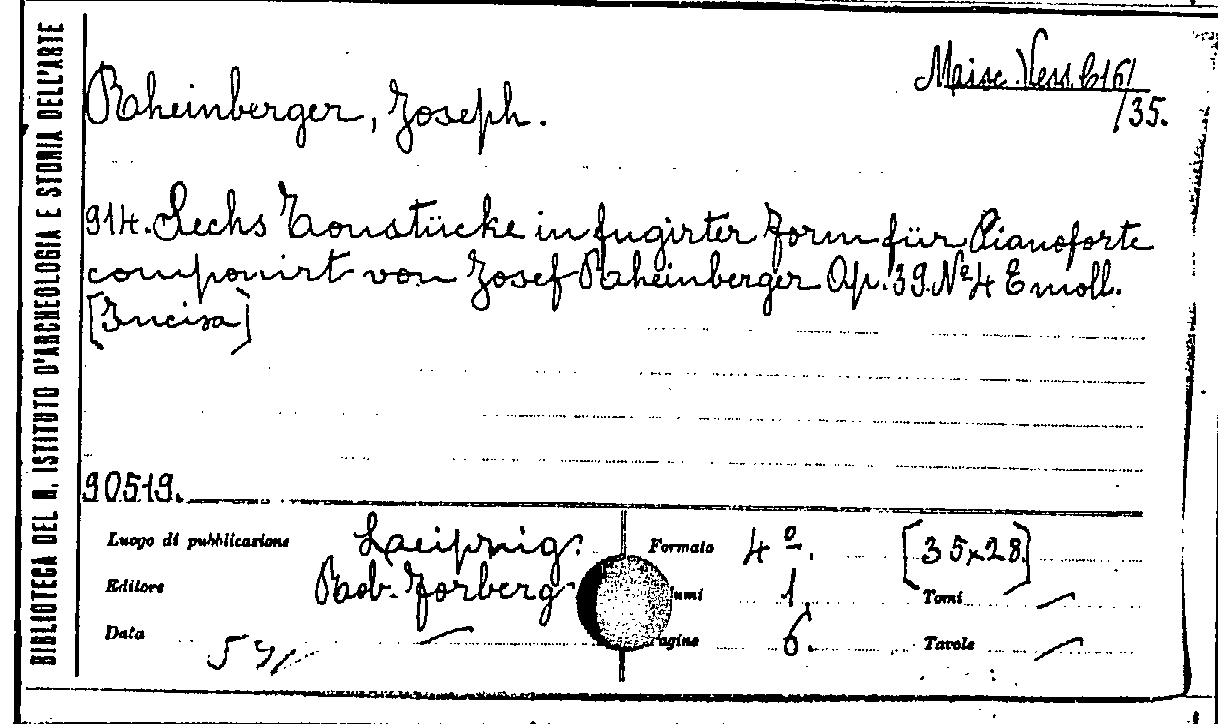 BIBLIOTECA DEL R. ISTITUTO D'ARCHEOLOGIA E STORIA DELL'ARTE
Misc. Vess. b16/
/35.
Rheinberger, Joseph.
914. Sechs Tonstücke in fugirter Form für Pianoforte
componirt von Josef Rheinberger Op. 39. Nº 4 E moll.
[Incisa]
90519.
Luogo di pubblicazione Leipzig: Formato 4º. [35x28]
Editore Rob. Forberg umi 1. Tomi —
Data — agine 6. Tavole —